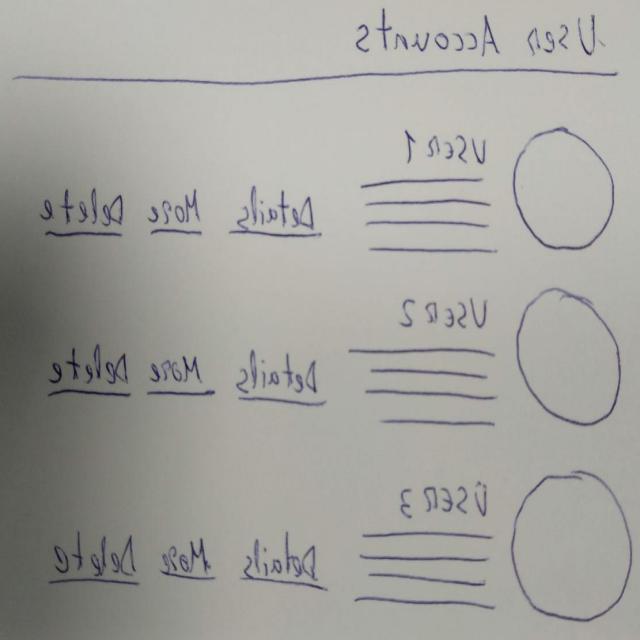 User Accounts
USER 1
Details More Delete
USER 2
Details More Delete
USER 3
Details More Delete